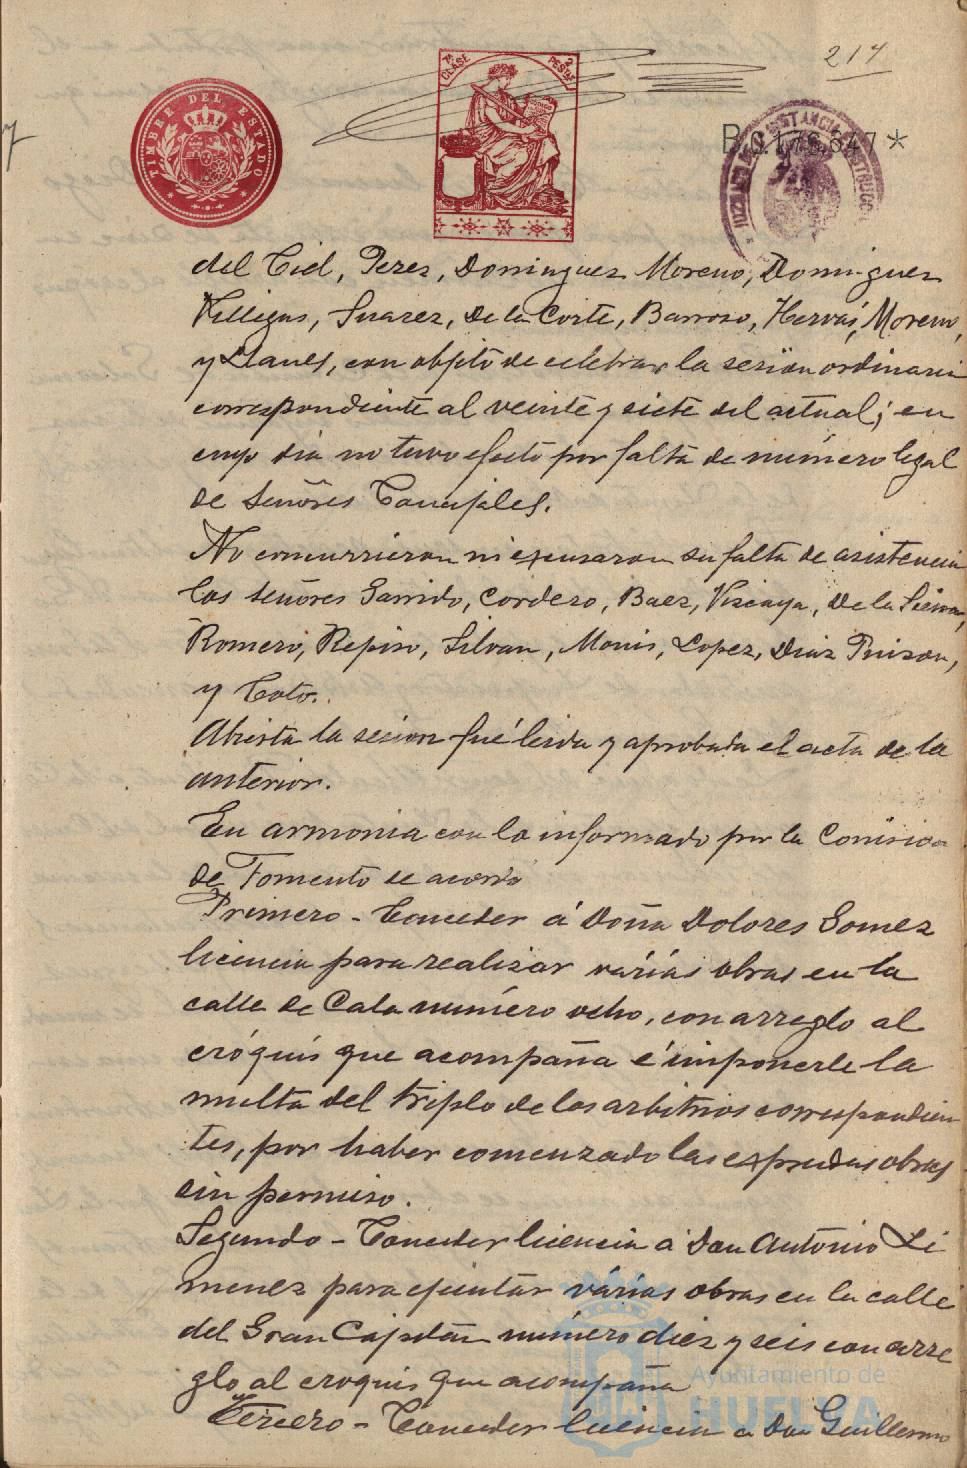 217
TIMBRE DEL ESTADO
7ª CLASE
2 PESTAS
B.0.176.847*
JUZGADO DE INSTANCIA INSTRUCC
del Cid, Perez, Dominguez Moreno, Dominguez
Villegas, Suarez, De la Corte, Barroso, Hervás, Moreno,
y Llanes, con objeto de celebrar la sesion ordinaria
correspondiente al veinte y siete del actual; en
cuyo dia no tuvo efecto por falta de número legal
de Señores Concejales.
No concurrieron ni excusaron su falta de asistencia
los señores Garrido, Cordero, Baez, Vizcaya, De la Sierra,
Romero, Repiso, Silvan, Monis, Lopez, Diaz
y Toto.
Abierta la sesion fué leida y aprobada el acta de la
anterior.
En armonia con lo informado por la Comision
de Fomento se acordó
Primero - Conceder á Doña Dolores Gomez
licencia para realizar várias obras en la
calle de Cala número ocho, con arreglo al
cróquis que acompaña é imponerle la
multa del triplo de los arbitrios correspondien
tes, por haber comenzado las expresadas obras
sin permiso.
Segundo - Conceder licencia á Don António Li
menez para ejecutar várias obras en la calle
del Gran Capitán número diez y seis con arre
glo al croquis que acompaña
Tercero - Conceder licencia a Don Guillermo
Ayuntamiento de
HUELVA